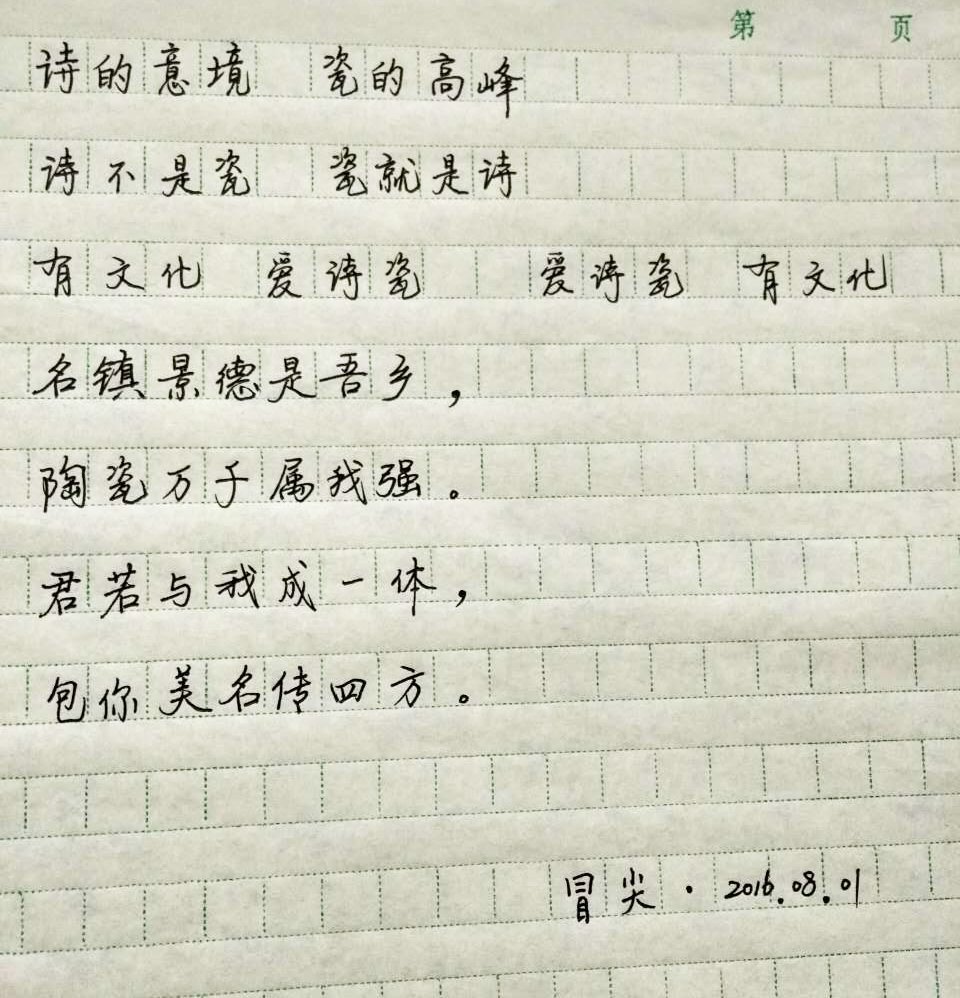 第 页
诗的意境 瓷的高峰
诗不是瓷 瓷就是诗
有文化 爱诗瓷 爱诗瓷 有文化
名镇景德是吾乡，
陶瓷万子属我强。
君若与我成一体，
包你美名传四方。
冒尖·2016.08.01